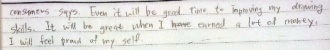 consumers says. Even it will be good time to improving my drawing
skills. It will be great when I earned a lot of money.
I will feel proud of my self